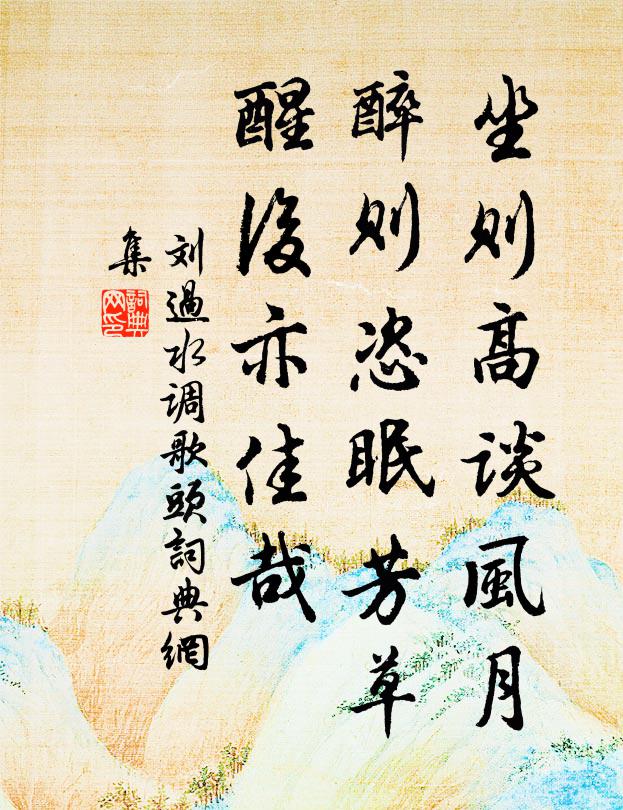 坐则高谈風月
醉则恣眠芳草
醒後亦佳哉
刘過水调歌頭詞典網
集
詞典
网印